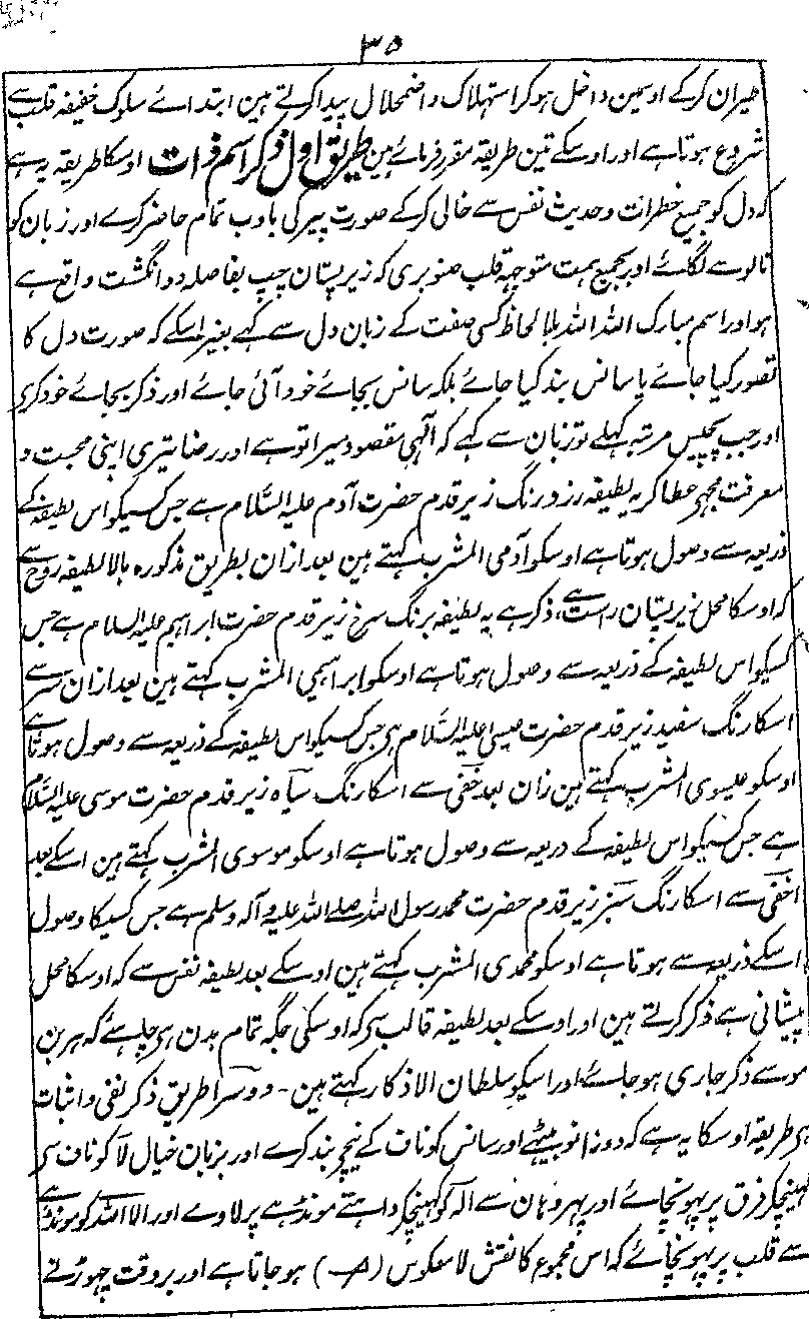 ۳۵
طیران کرکے اوسمین داخل ہوکر استہلاک واضمحلال پیدا کرتے ہین ابتداے سلوک خفیفہ قلب سے
شروع ہوتا ہے اور اوسکے تین طریقہ مقرر فرمائے ہین طریق اول ذکر اسم ذات اوسکا طریقہ یہ ہے
کہ دل کو جمیع خطرات وحدیث نفس سے خالی کرکے صورت پیر کی بادب تمام حاضر کرے اور زبان کو
تالو سے لگائے اور بجمیع ہمت متوجہ قلب صنوبری کہ زیر پستان چپ بفاصلہ دو انگشت واقع ہے
ہو اور اسم مبارک اللہ اللہ بلا لحاظ کسی صفت کے زبان دل سے کہے بغیر اسکے کہ صورت دل کا
تصور کیا جائے یا سانس بند کیا جائے بلکہ سانس بجائے خود آئی جائے اور ذکر بجائے خود کری
اور جب پچیس مرتبہ کہلے تو زبان سے کہے کہ الٰہی مقصود میرا تو ہے اور رضا تیری اپنی محبت و
معرفت مجہے عطا کر یہ لطیفہ زرد رنگ زیر قدم حضرت آدم علیہ السّلام ہے جس کسیکو اس لطیفہ کے
ذریعہ سے وصول ہوتا ہے اوسکو آدمی المشرب کہتے ہین بعد ازان بطریق مذکورہ بالا لطیفہ روح سے
کہ اوسکا محل زیر پستان راست ہے، ذکر ہے یہ لطیفہ برنگ سرخ زیر قدم حضرت ابراہیم علیہ السلام ہے جس
کسیکو اس لطیفہ کے ذریعہ سے وصول ہوتا ہے اوسکو ابراہمی المشرب کہتے ہین بعد ازان سر سے
اسکا رنگ سفید زیر قدم حضرت عیسی علیہ السّلام ہی جس کسیکو اس لطیفہ کے ذریعہ سے وصول ہوتا ہے
اوسکو عیسوی المشرب کہتے ہین زان بعد خفی سے اسکا رنگ سیاہ زیر قدم حضرت موسی علیہ السّلام
ہے جس کسیکو اس لطیفہ کے ذریعہ سے وصول ہوتا ہے اوسکو موسوی المشرب کہتے ہین اسکے بعد
اخفی سے اسکا رنگ سبز زیر قدم حضرت محمد رسول اللہ صلے اللہ علیہ وآلہ وسلم ہے جس کسیکا وصول
اسکے ذریعہ سے ہوتا ہے اوسکو محمدی المشرب کہتے ہین اوسکے بعد لطیفہ نفس سے کہ اوسکا محل
پیشانی ہے ذکر کرتے ہین اور اوسکے بعد لطیفہ قالب سے کہ اوسکی جگہ تمام بدن ہی چاہئے کہ ہر بن
مو سے ذکر جاری ہو جائے اور اسیکو سلطان الاذکار کہتے ہین - دوسرا طریق ذکر نفی واثبات
ہی طریقہ اوسکا یہ ہے کہ دوزانو بیٹھے اور سانس کو ناف کے نیچے بند کرے اور بزبان خیال لا کو ناف سی
کہینچکر فرق پر پہونچائے اور پہر وہان سے الہ کو کہینچکر داہنے مونڈہے پر لاوے اور الا اللہ کو مونڈہے
سے قلب پر پہونچائے کہ اس مجموع کا نقش لا معکوس ( ) ہو جاتا ہے اور بروقت چہوڑنے